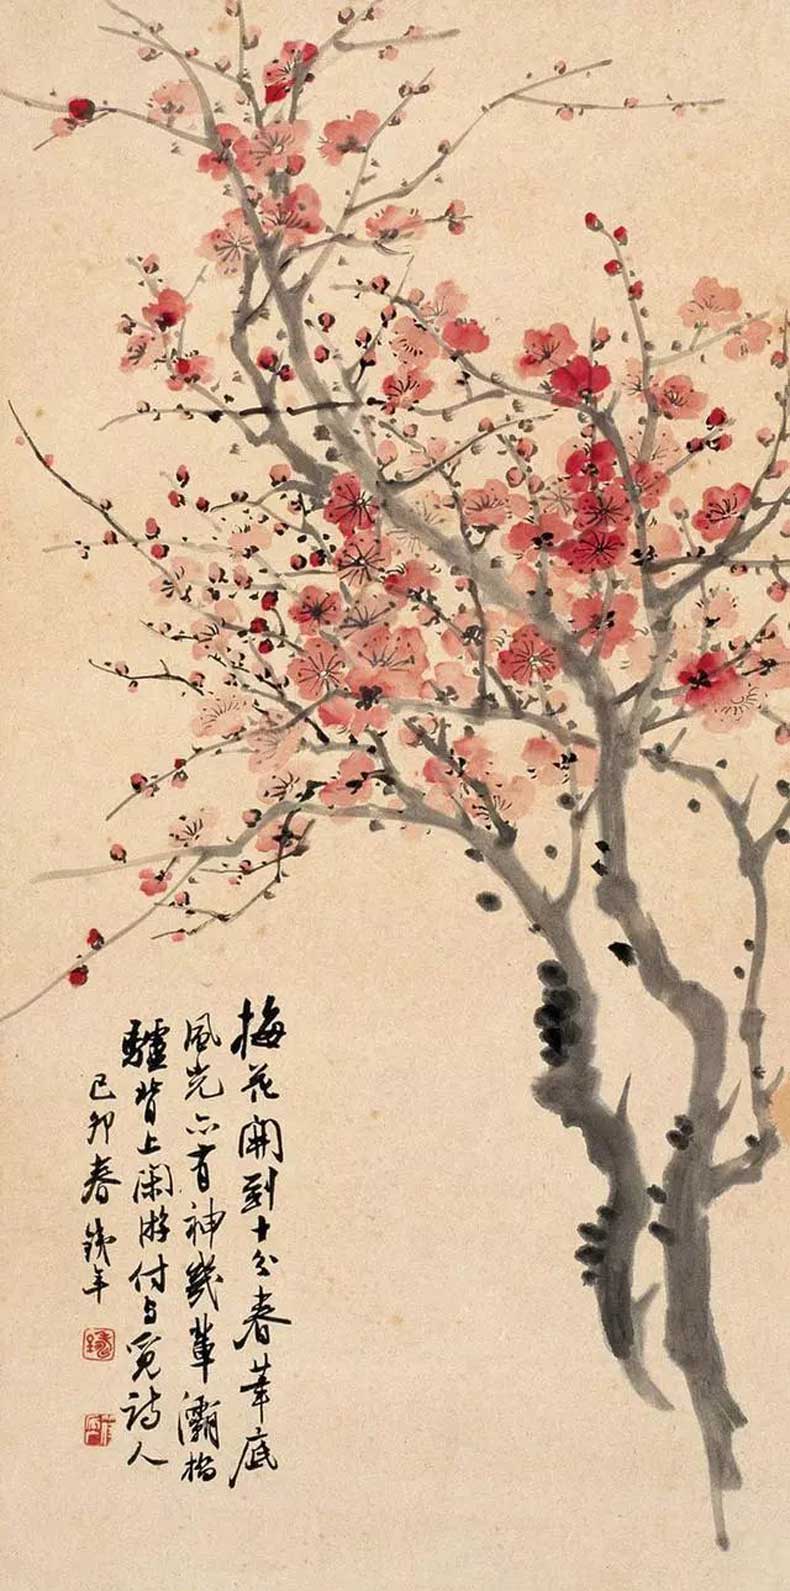 梅花開到十分春筆底
風光亦有神幾輩灞橋
驢背上閑游付与覓詩人
己卯春銕年